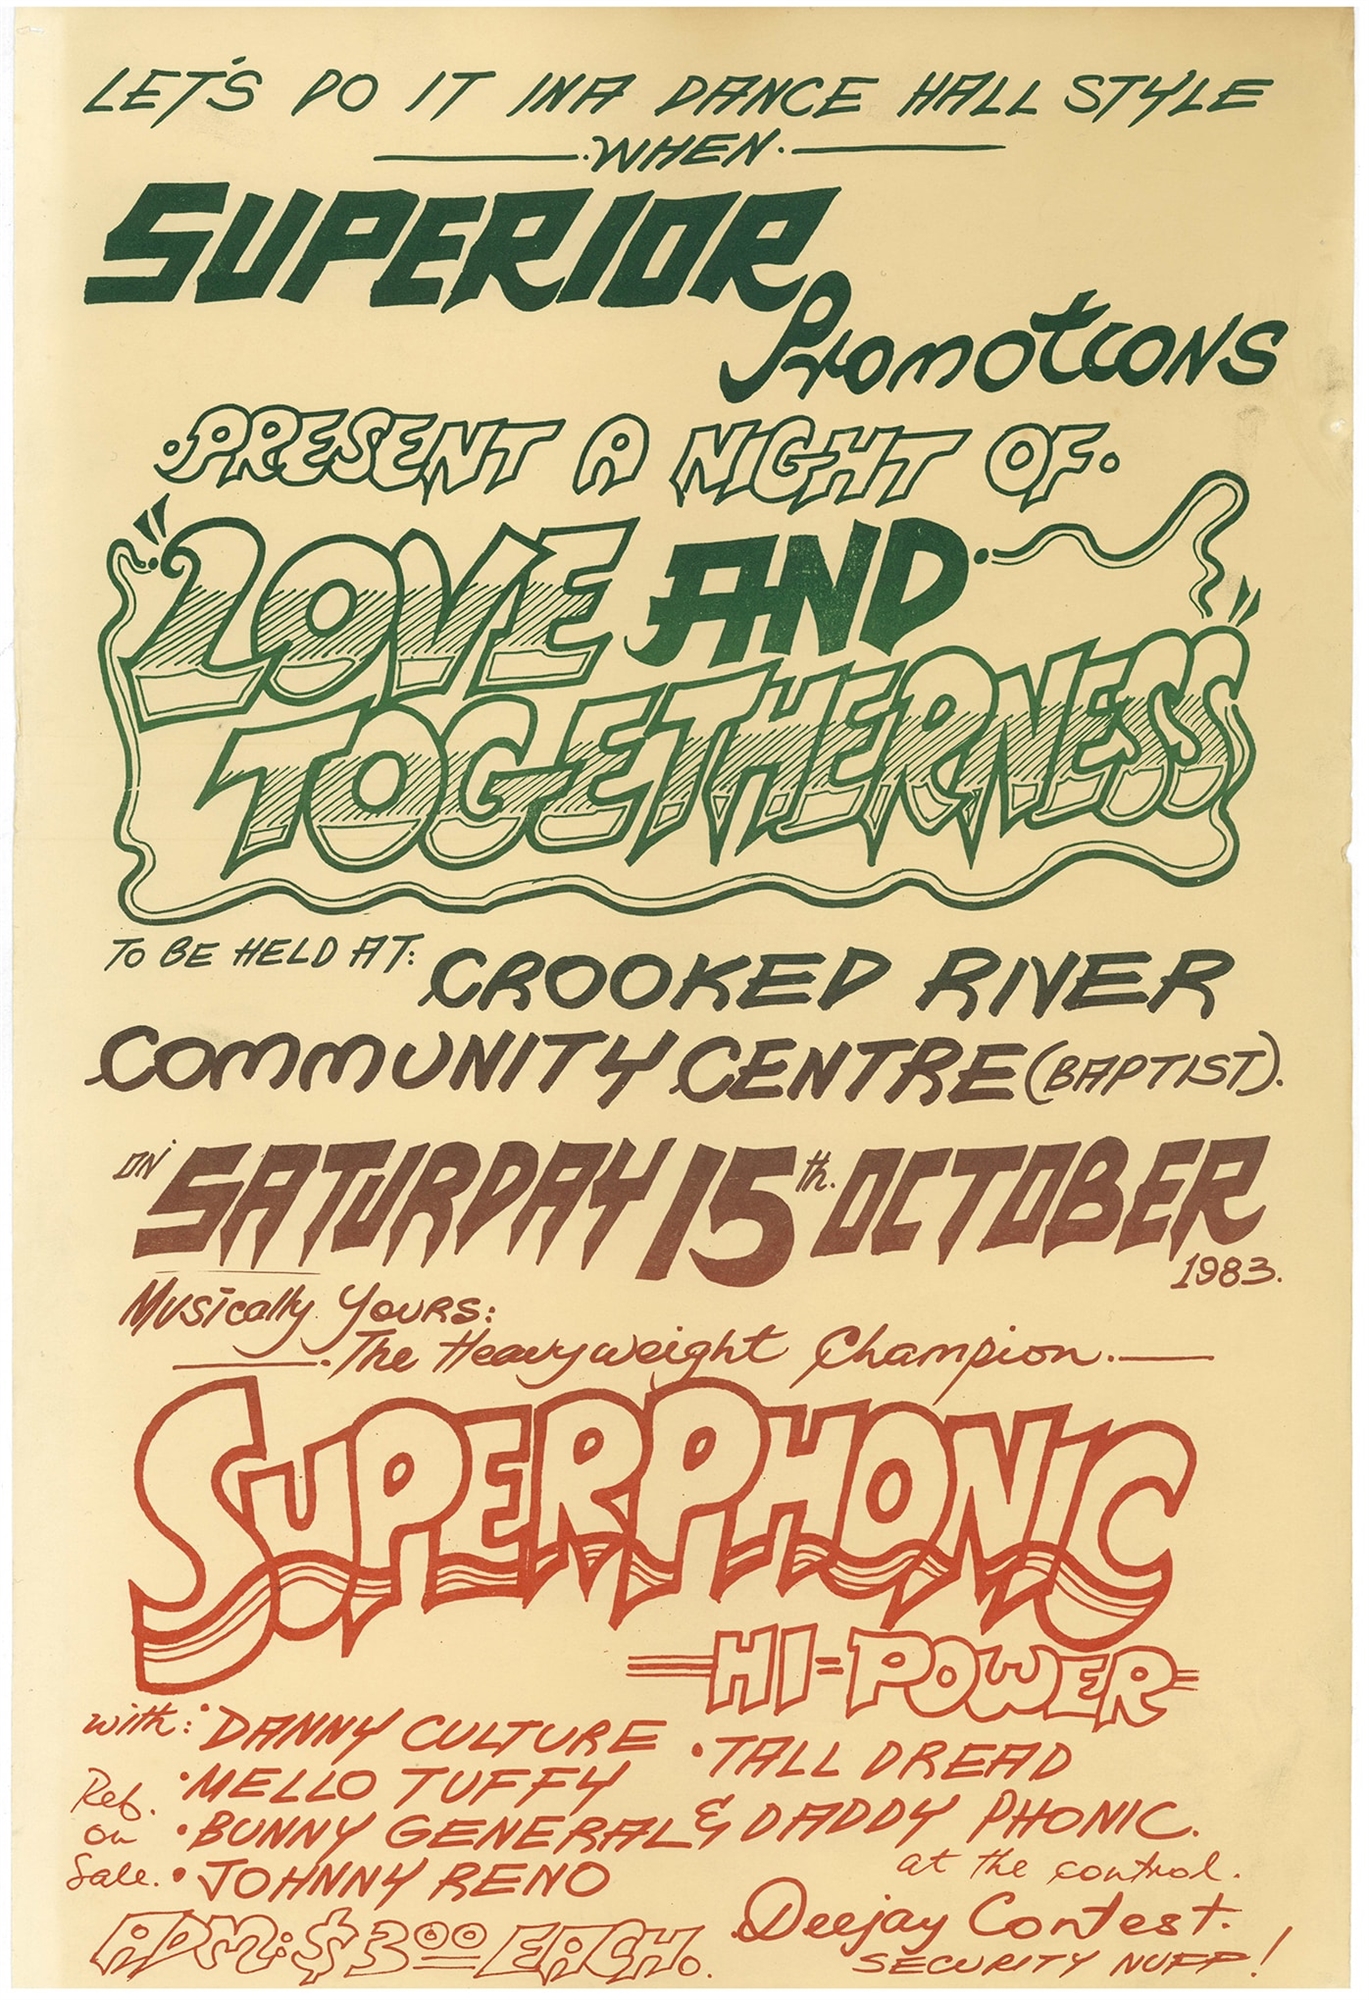 LET'S DO IT INA DANCE HALL STYLE
WHEN
SUPERIOR
Promotions
PRESENT A NIGHT OF.
LOVE AND
TOGETHERNESS
TO BE HELD AT: CROOKED RIVER
COMMUNITY CENTRE (BAPTIST).
ON SATURDAY 15th. OCTOBER
1983.
Musically Yours:
The Heavyweight Champion.
SUPERPHONIC
HI=POWER
with: • DANNY CULTURE • TALL DREAD
• MELLO TUFFY
• BUNNY GENERAL & DADDY PHONIC.
• JOHNNY RENO
at the control.
Ref. on Sale.
Deejay Contest.
ADM: $3.00 EACH.
SECURITY NUFF!